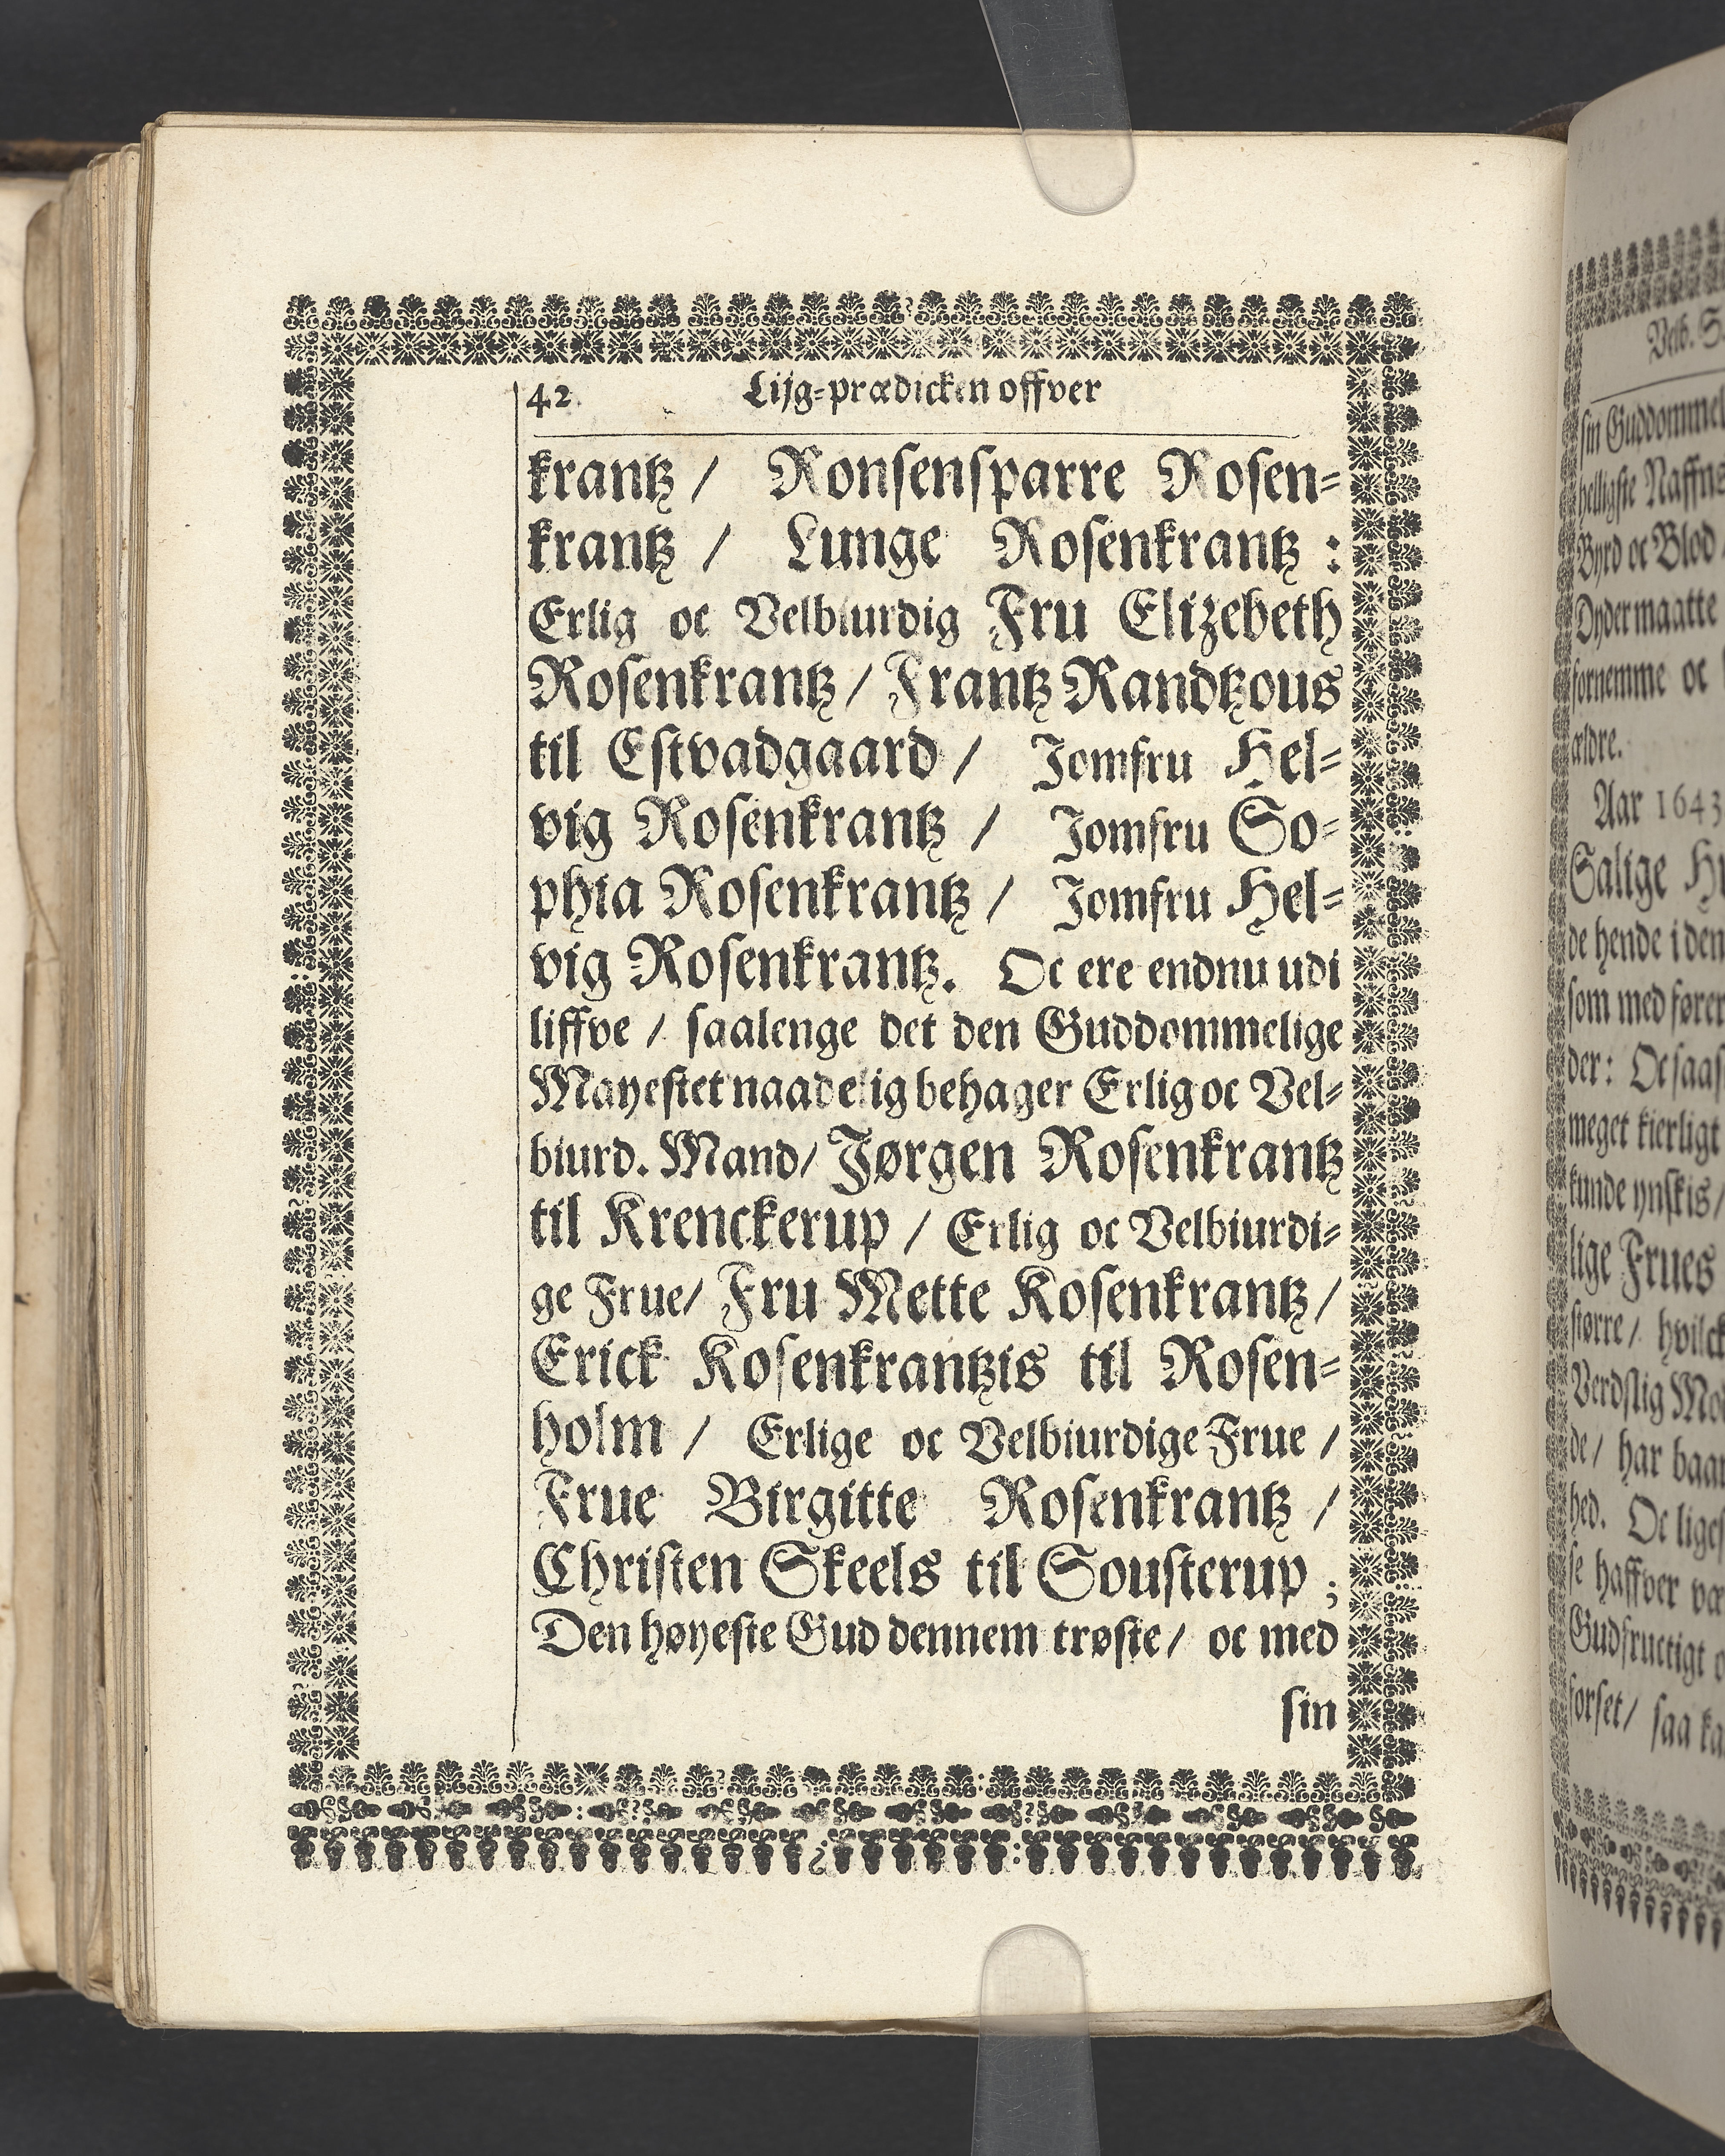 42. Lijg-prædicken offver
krantz / Ronsensparre Rosen-
krantz / Lunge Rosenkrantz :
Erlig oc Velbiurdig Fru Elizebeth
Rosenkrantz / Frantz Randtzous
til Estvadgaard / Jomfru Hel-
vig Rosenkrantz / Jomfru So-
phia Rosenkrantz / Jomfru Hel-
vig Rosenkrantz. Oc ere endnu udi
liffve / saalenge det den Guddommelige
Mayestet naadelig behager Erlig oc Vel-
biurd. Mand/ Jørgen Rosenkrantz
til Krenckerup / Erlig oc Velbiurdi-
ge Frue/ Fru Mette Rosenkrantz /
Erick Rosenkrantzis til Rosen-
holm / Erlige oc Velbiurdige Frue /
Frue Birgitte Rosenkrantz /
Christen Skeels til Sousterup ;
Den høyeste Gud dennem trøste / oc med
sin
Velb.
sin Guddommel
helligste Naffns
Byrd oc Blod
Dydermaatte
fornemme oc
ældre.
Aar 1643
Salige
de hende i den
som med fører
der: Oc saa
meget kierligt
kunde ynskis /
lige Frues
større / hvilck
Verdslig
de / har baa
hed. Oc lige
se haffver
Gudfructigt
forset / saa